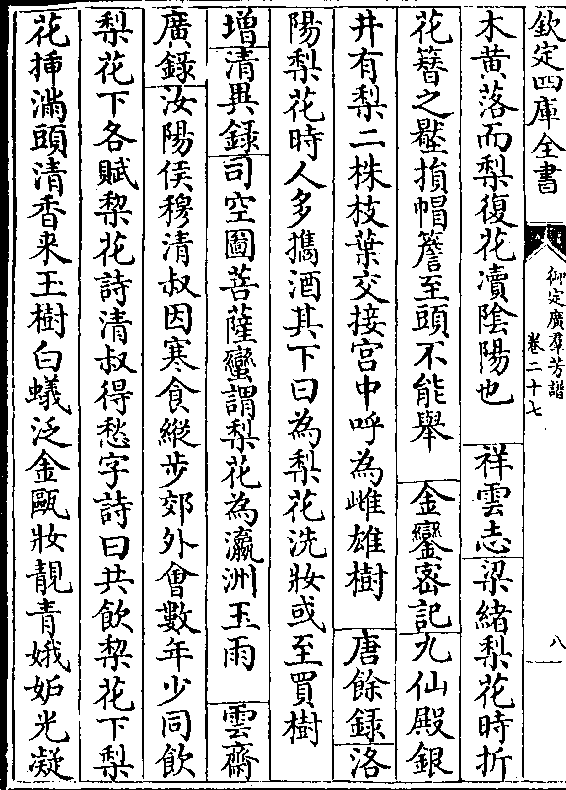 欽定四庫全書
御定廣羣芳譜
卷二十七
八
木黄落而梨復花瀆陰陽也 祥雲志梁緒梨花時折
花簪之壓損帽簷至頭不能舉 金鑾宻記九仙殿銀
井有梨二株枝葉交接宫中呼為雌雄樹 唐餘録洛
陽梨花時人多攜酒其下曰為梨花洗妝或至買樹
增清異録司空圖菩薩蠻謂梨花為瀛洲玉雨 雲齋
廣録汝陽侯穆清叔因寒食縱步郊外會數年少同飲
梨花下各賦梨花詩清叔得愁字詩曰共飲梨花下梨
花插滿頭清香来玉樹白蟻泛金甌妝靚青娥妒光凝